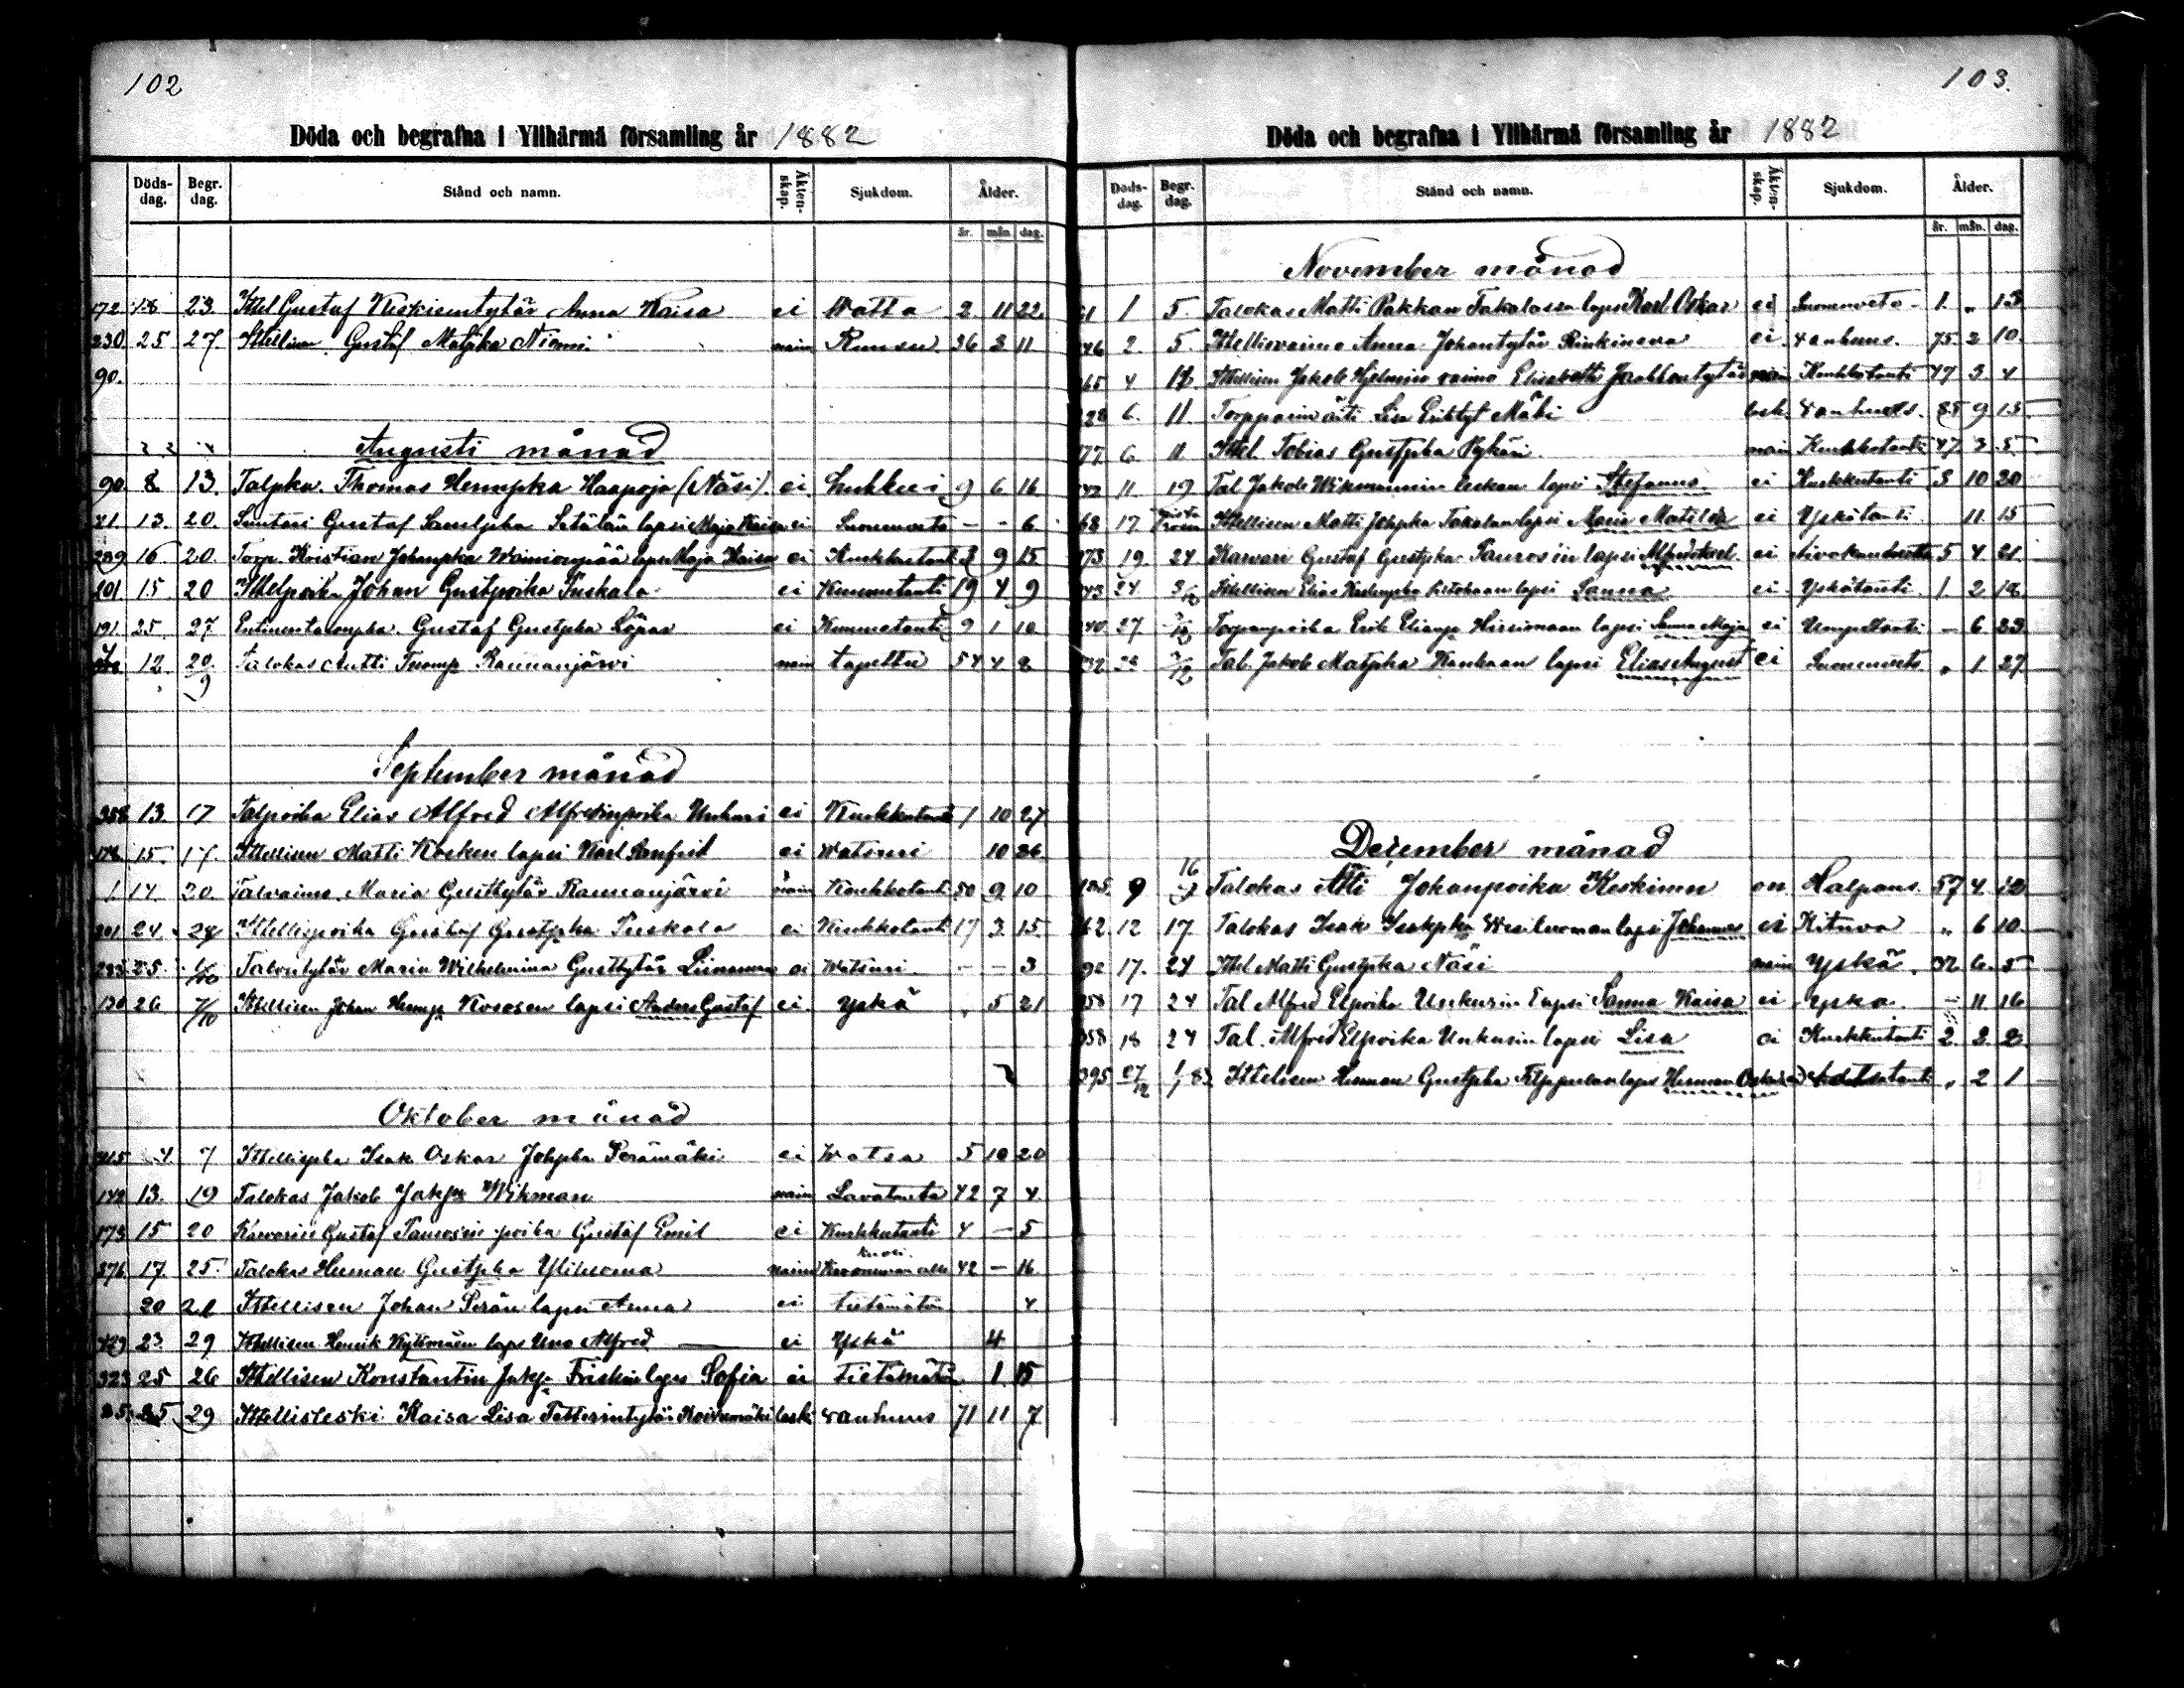 102
Döda och begrafna i Ylihärmä församling år 1882
Döds-dag. Begr. dag. Stånd och namn. Äkten-skap. Sjukdom. Ålder.
år. mån. dag.
172 18 23. Ittel Gustaf Keskisentytär Anna Kaisa ei Watta 2 11 22.
230. 25 27. Ittellinen Gustaf Matpka Niemi nain 36 3 11
90.
Augusti månad
90 8 13. Talpka. Thomas Hermpka Haapoja (Näsi). ei 9 6 16
13. 20. Gustaf lapsi Maja Kaisa ei Suonenveto – – 6.
289 16 20. Torp. Kristian Johanpka Wainionpää lapsi Maja Kaisa ei Kurkkutauti 3 9 15
201 15 20 Ittelpoika Johan Gustpoika Puskala ei 19 4 9
191 25. 27 Gustaf Gustpka ei 9 1 10
12. 20/9 Talokas Antti Tuomp Rannanjärvi nain tapettu 54 4 2
September månad
358 13. 17 Talpoika Elias Alfred Alfredinpoika Unkuri ei Kurkkutauti 1 10 27
178 15. 17. Ittellisen Matti Kosken lapsi Karl Sanfrid ei Watsuri 10 26
1. 14. 20. Talvaimo. Maria Gusttytär Rannanjärvi nain Keuhkotauti 50 9 10
201 24. 24 Ittellispoika Gustaf Gustpka Puskala ei Keuhkotauti 17 3. 15.
25. 1/10 Talontytär Maria Wilhelmina Gusttytär ei Watsuri – – 3
130 26 7/10 Ittellisen Johan Hermp Kososen lapsi Anders Gustaf ei. Yskä „ 5 21
Oktober månad
4. 7 Ittellispka Isak Oskar Johpka Perämäki ei Watsa 5 10 20
142 13. 19 Talokas Jakob Jakp Wikman nain Lavatauti 42 7 4.
173 15 20 Karvarin Gustaf poika Gustaf Emil ei Kurkkutauti 4 – 5
376 17. 25. Talokas Herman Gustpka Ylihuoma nain kuoli. alle 42 – 16
20 21 Ittellisen Johan Perän lapsi Anna ei tietämätön 4
23. 29 Ittellisen Henrik lapsi Uno Alfred ei Yskä 4
323 25 26 Ittellisen Konstantin Jakp Friskin lapsi Sofia ei tietämätön 1 15
25 29 Ittellisleski Kaisa Lisa Koivumäki leski vanhuus 71 11 7
103.
Döda och begrafna i Ylihärmä församling år 1882
Döds-dag. Begr. dag. Stånd och namn. Äkten-skap. Sjukdom. Ålder.
år. mån. dag.
November månad
1 5. Talokas Matti Pakkan lapsi Karl Oskar ei Suonenveto 1. „ 13
2. 5. Ittellisvaimo Anna Johantytär ei. vanhuus. 75 2 10.
4 12 Ittellisen Jakob vaimo Elisabetti Jaakkontytär nain Keuhkotauti 47 3 4
6. 11. Torpparin äiti Lisa Eriktyt Mäki lesk vanhuus. 85 9 13
77 6 11 Ittel. Tobias Gustpka Pykäri nain Keuhkotauti 47 3 5
142 11. 19 Tal Jakob Wikmannin lesken lapsi Stefanus ei Kurkkutauti 3 10 20
68 17 Ittellisen Matti Johpka Takalan lapsi Maria Matilda ei Yskätauti 11 15
173 19. 24 Karvari Gustaf Gustpka lapsi Alfred Karl. ei 5 4 21.
24 3/12 Ittellisen Elias lapsi Sanna ei. Yskätauti. 1. 2 18
27. 3/12 Torpanpoika Erik Eliasp lapsi Sanna Maja ei – 6 23
3/12 Tal. Jakob Matpka Kankaan lapsi Elias August ei Suonenveto „ 1 27.
December månad
9 16 Talokas Atti Johanpoika Keskinen on Halpaus. 57 4 12
62 12 17. Talokas Isak Isakpka lapsi Johannes ei Kituva „ 6 10.
92 17. 24 Ittel Matti Gustpka Näsi nain Yskä. 32 6. 5
358 17 24 Tal Alfred Elpoika Unkurin lapsi Sanna Kaisa ei Yskä. – 11 16
358 18 24 Tal. Alfred Elpoika Unkurin lapsi Lisa ei Kurkkutauti 2 2. 2.
395 27/12 1/1 83 Ittelisen Herman Gustpka lapsi Herman Oskar „ 2 1